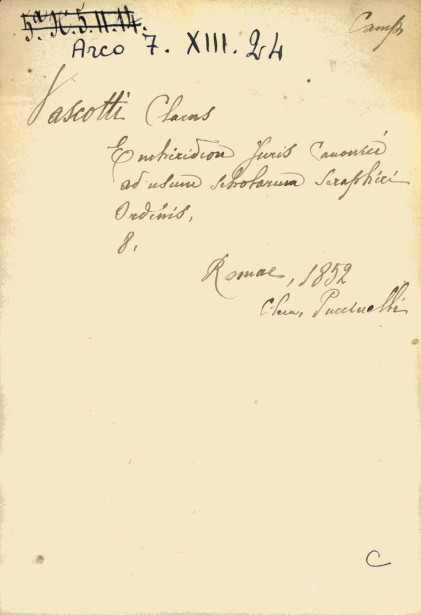 5ª K. 5. II. 14.
Camp
Arco 7. XIII. 24
Vascotti Clarus
Enchiridion Juris Canonici
ad usum scholarum seraphici
Ordinis,
8,
Romae, 1852
Puccinelli
C